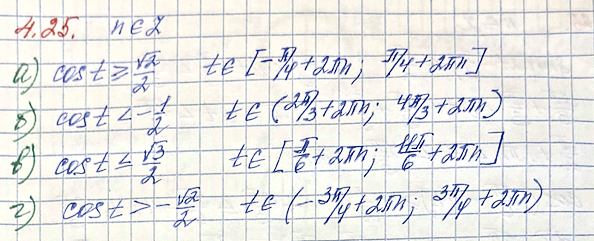 4.25. n∈Z
а) cos t ≥ √2/2 t∈[-π/4+2πn; π/4+2πn]
б) cos t < -1/2 t∈(2π/3+2πn; 4π/3+2πn)
в) cos t ≤ √3/2 t∈[π/6+2πn; 11π/6+2πn]
г) cos t > -√2/2 t∈(-3π/4+2πn; 3π/4+2πn)